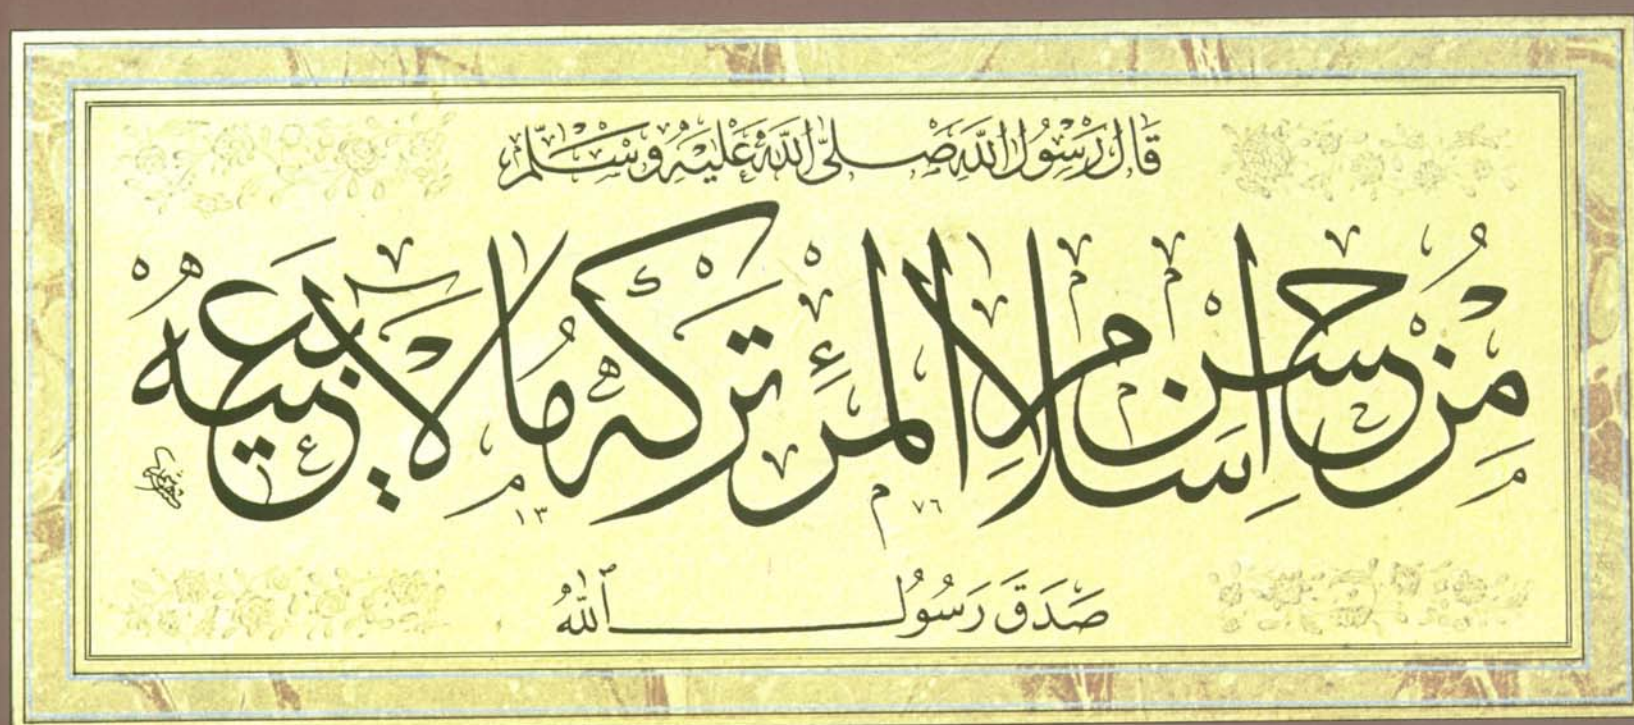 قَالَ رَسُولُ اللهِ صَلَّى اللهُ عَلَيْهِ وَسَلَّمَ
مِنْ حُسْنِ اِسْلَامِ الْمَرْءِ تَرْكُهُ مَا لَا يَعْنِيهِ
١٣ ٧٦
صَدَقَ رَسُولُ اللهِ